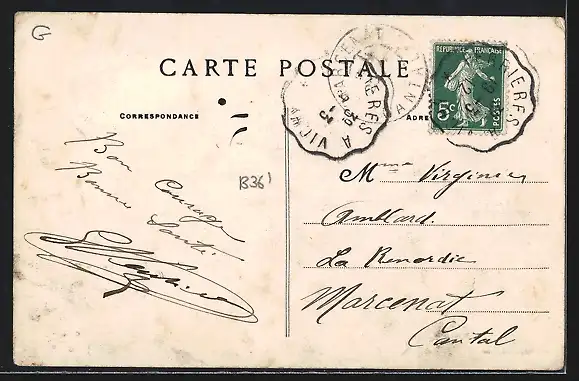 G
CARTE POSTALE
CORRESPONDANCE
ADRE
REPUBLIQUE FRANÇAISE
5c POSTES
IERES A VIC
Bon Courage
Bonne Santé
B36'
Mme Virginie
Amblard.
La Renordie
Marcenat
Cantal